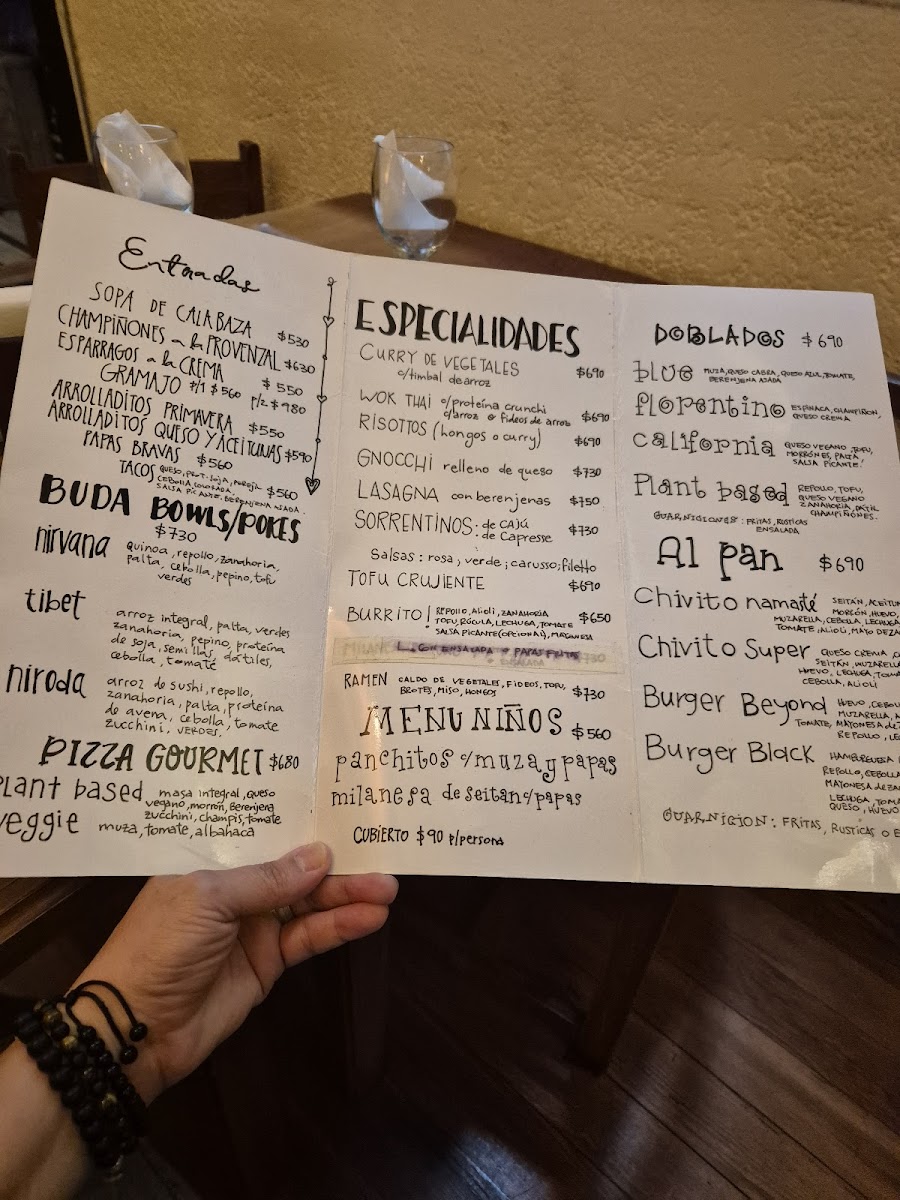 Entradas
SOPA DE CALABAZA $530
CHAMPIÑONES a la PROVENZAL $630
ESPARRAGOS a la CREMA $550
GRAMAJO p/1 $560 p/2 $980
ARROLLADITOS PRIMAVERA $550
ARROLLADITOS QUESO Y ACEITUNAS $590
PAPAS BRAVAS $560
TACOS QUESO, PROT. SOJA, PEREJIL
CEBOLLA COLORADA,
SALSA PICANTE, BERENJENA ASADA. $560
BUDA BOWLS/POKES
$730
nirvana quinoa, repollo, zanahoria,
palta, cebolla, pepino, tofu
verdes
tibet
arroz integral, palta, verdes
zanahoria, pepino, proteina
de soja, semillas, dátiles,
cebolla, tomate
niroda arroz de sushi, repollo,
zanahoria, palta, proteína
de avena, cebolla, tomate
zucchini, VERDES.
PIZZA GOURMET $680
Plant based masa integral, queso
vegano, morrón, Berenjena
zucchini, champis, tomate
veggie muza, tomate, albahaca
ESPECIALIDADES
CURRY DE VEGETALES
c/timbal de arroz $690
WOK THAI c/proteína crunchi
c/arroz o fideos de arroz $690
RISOTTOS (hongos o curry) $690
GNOCCHI relleno de queso $730
LASAGNA con berenjenas $750
SORRENTINOS: de CAJÚ
de Capresse $730
Salsas: rosa, verde, carusso, filetto
TOFU CRUJIENTE $690
BURRITO! REPOLLO, ALIOLI, ZANAHORIA
TOFU, RÚCULA, LECHUGA, TOMATE
SALSA PICANTE (OPCIONAL), MAYONESA $650
CON ENSALADA o PAPAS FRITAS
RAMEN CALDO DE VEGETALES, FIDEOS, TOFU,
BROTES, MISO, HONGOS $730
MENU NIÑOS $560
panchitos c/muza y papas
milanesa de seitan c/papas
CUBIERTO $90 p/persona
DOBLADOS $690
blue MUZA, QUESO CABRA, QUESO AZUL, TOMATE,
BERENJENA ASADA
florentino ESPINACA, CHAMPIÑON,
QUESO CREMA
california QUESO VEGANO, TOFU,
MORRONES, PALTA,
SALSA PICANTE.
Plant based REPOLLO, TOFU,
QUESO VEGANO
ZANAHORIA, DATIL
CHAMPIÑONES.
GUARNICIONES: FRITAS, RUSTICAS
ENSALADA
Al pan $690
Chivito namasté SEITÁN, ACEITUN
MORRÓN, HUEVO,
MUZARELLA, CEBOLLA, LECHUGA
TOMATE, ALIOLI, MAYO DE ZAN
Chivito Super QUESO CREMA,
SEITÁN, MUZARELLA
HUEVO, LECHUGA, TOMA
CEBOLLA, ALIOLI
Burger Beyond HUEVO, CEBO
MUZARELLA,
TOMATE, MAYONESA de
REPOLLO, LE
Burger Black HAMBURGUESA
REPOLLO, CEBOLLA
MAYONESA de ZA
LECHUGA, TOMA
QUESO, HUEVO
GUARNICION: FRITAS, RUSTICAS o E